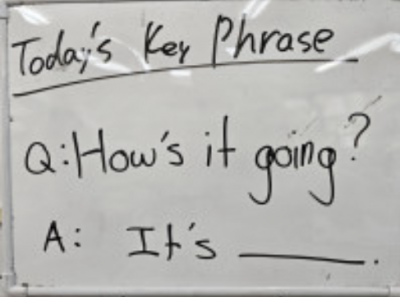 Today's Key Phrase
Q: How's it going?
A: It's ______.